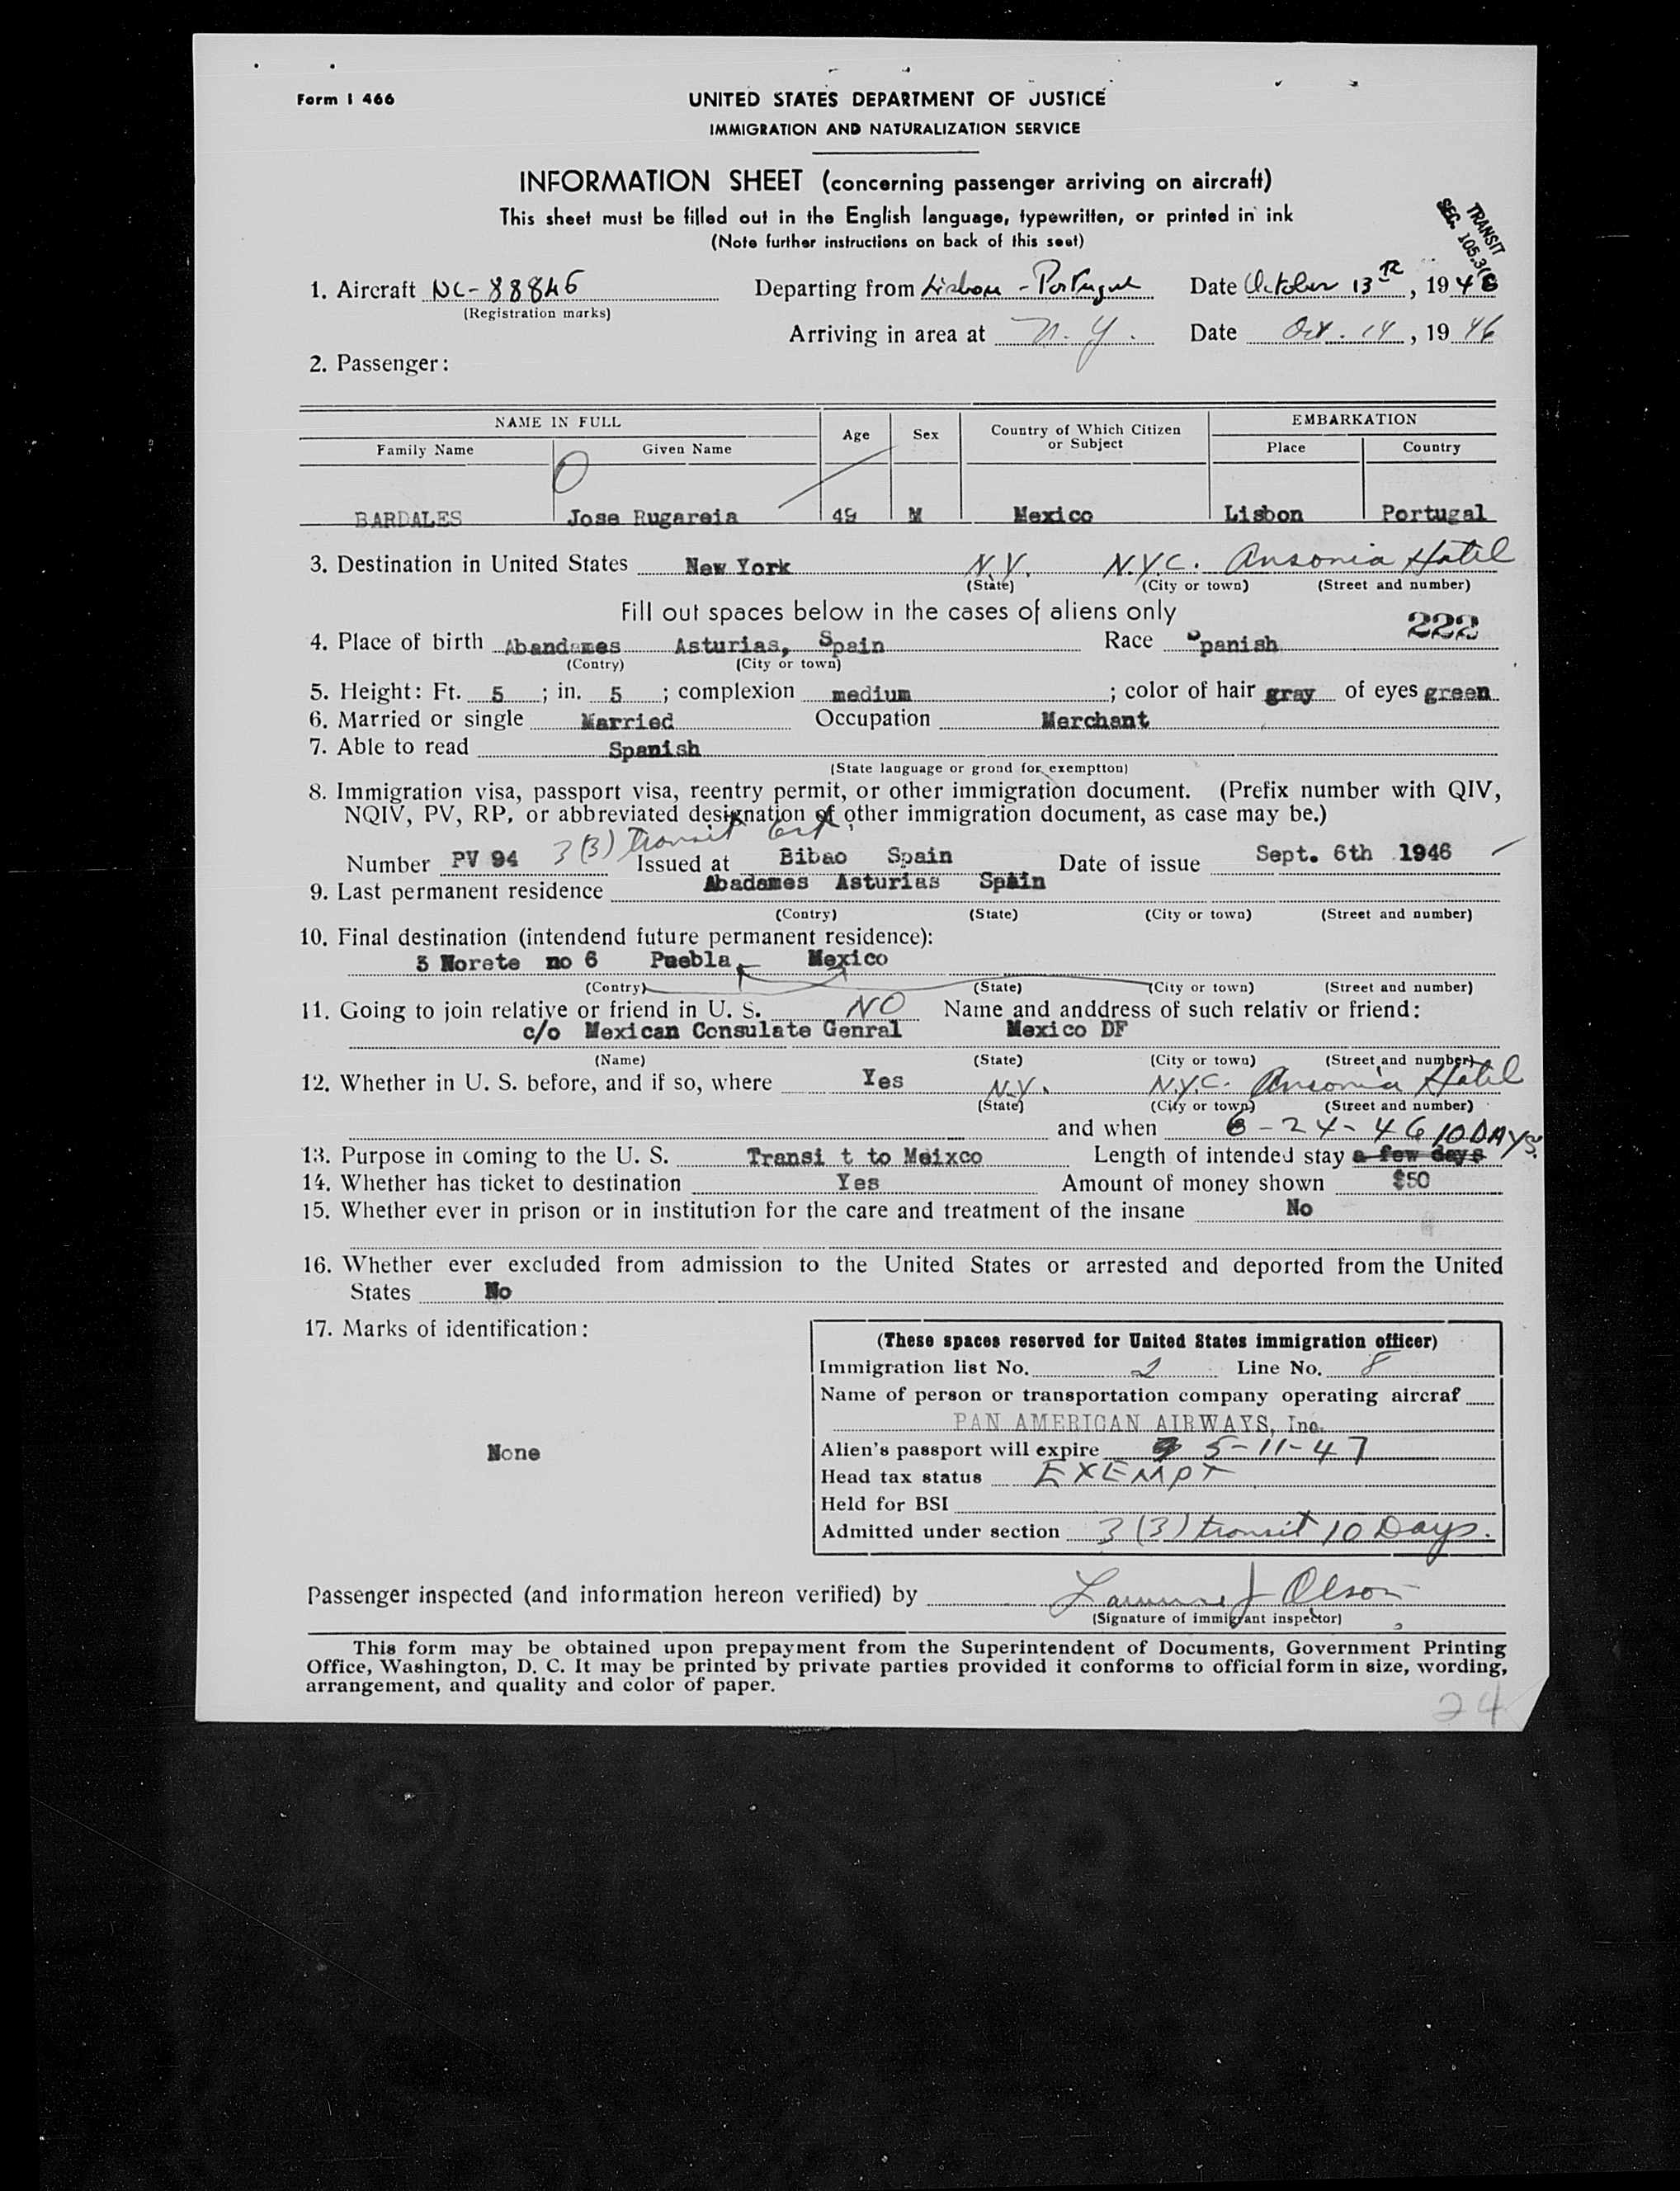 Form I 466
UNITED STATES DEPARTMENT OF JUSTICE
IMMIGRATION AND NATURALIZATION SERVICE
INFORMATION SHEET (concerning passenger arriving on aircraft)
This sheet must be filled out in the English language, typewritten, or printed in ink
(Note further instructions on back of this seet)
TRANSIT
SEC. 105.3(
1. Aircraft NC-88846 Departing from Lisbon - Portugal Date October 13th, 1946
(Registration marks)
Arriving in area at N.Y. Date Oct. 14, 1946
2. Passenger:
NAME IN FULL Age Sex Country of Which Citizen or Subject EMBARKATION
Family Name Given Name Place Country
BARDALES Jose Rugareia 49 M Mexico Lisbon Portugal
3. Destination in United States New York N.Y. N.Y.C. Ansonia Hotel
(State) (City or town) (Street and number)
Fill out spaces below in the cases of aliens only
222
4. Place of birth Abandames Asturias, Spain Race Spanish
(Contry) (City or town)
5. Height: Ft. 5; in. 5; complexion medium; color of hair gray of eyes green
6. Married or single Married Occupation Merchant
7. Able to read Spanish
(State language or grond for exemptton)
8. Immigration visa, passport visa, reentry permit, or other immigration document. (Prefix number with QIV,
NQIV, PV, RP, or abbreviated designation of other immigration document, as case may be.)
3(3) Transit
Number PV 94 Issued at Bibao Spain Date of issue Sept. 6th 1946
9. Last permanent residence Abadames Asturias Spain
(Contry) (State) (City or town) (Street and number)
10. Final destination (intendend future permanent residence):
3 Norete no 6 Puebla Mexico
(Contry) (State) (City or town) (Street and number)
11. Going to join relative or friend in U. S. NO Name and anddress of such relativ or friend:
c/o Mexican Consulate Genral Mexico DF
(Name) (State) (City or town) (Street and number)
12. Whether in U. S. before, and if so, where Yes N.Y. N.Y.C. Ansonia Hotel
(State) (City or town) (Street and number)
and when 6-24-46 10 DAYS.
13. Purpose in coming to the U. S. Transi t to Meixco Length of intended stay a few days
14. Whether has ticket to destination Yes Amount of money shown $50
15. Whether ever in prison or in institution for the care and treatment of the insane No
16. Whether ever excluded from admission to the United States or arrested and deported from the United
States No
17. Marks of identification:
None
(These spaces reserved for United States immigration officer)
Immigration list No. 2 Line No. 8
Name of person or transportation company operating aircraf
PAN AMERICAN AIRWAYS, Inc.
Alien's passport will expire 5-11-47
Head tax status EXEMPT
Held for BSI
Admitted under section 3(3) transit 10 Days.
Passenger inspected (and information hereon verified) by Lawrence J Olson
(Signature of immigrant inspector)
This form may be obtained upon prepayment from the Superintendent of Documents, Government Printing
Office, Washington, D. C. It may be printed by private parties provided it conforms to official form in size, wording,
arrangement, and quality and color of paper.
24